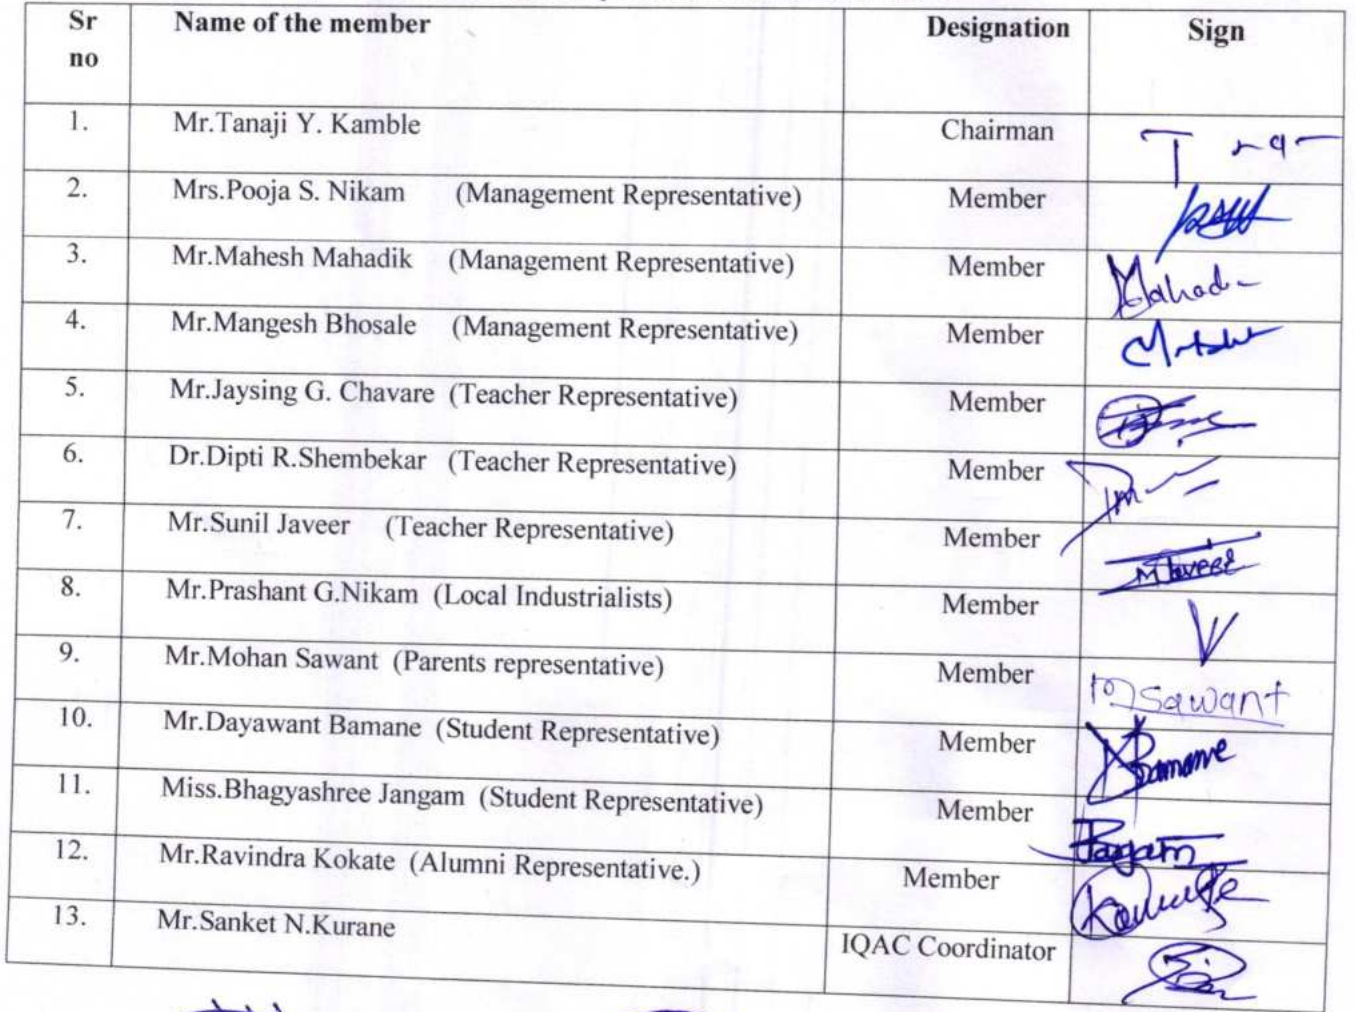 Sr no Name of the member Designation Sign
1. Mr.Tanaji Y. Kamble Chairman
2. Mrs.Pooja S. Nikam (Management Representative) Member
3. Mr.Mahesh Mahadik (Management Representative) Member
4. Mr.Mangesh Bhosale (Management Representative) Member
5. Mr.Jaysing G. Chavare (Teacher Representative) Member
6. Dr.Dipti R.Shembekar (Teacher Representative) Member
7. Mr.Sunil Javeer (Teacher Representative) Member
8. Mr.Prashant G.Nikam (Local Industrialists) Member
9. Mr.Mohan Sawant (Parents representative) Member MSawant
10. Mr.Dayawant Bamane (Student Representative) Member Bamane
11. Miss.Bhagyashree Jangam (Student Representative) Member
12. Mr.Ravindra Kokate (Alumni Representative.) Member
13. Mr.Sanket N.Kurane IQAC Coordinator